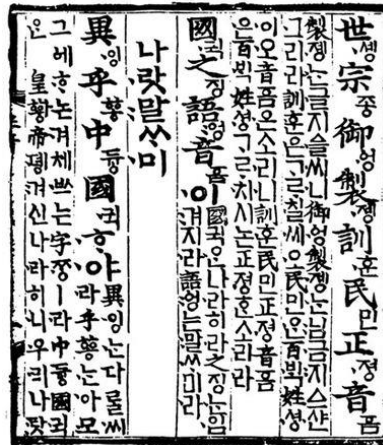 世솅宗종御엉製졩訓훈民민正졍音ᅙᅳᆷ
製졩는글지ᅀᅳᆯ씨니御엉製졩는님금지ᅀᅳ샨
그리라訓훈은ᄀᆞᄅᆞ칠씨오民민ᄋᆞᆫ百ᄇᆡᆨ姓셩
이오音ᅙᅳᆷ은소리니訓훈民민正졍音ᅙᅳᆷ
은百ᄇᆡᆨ姓셩ᄀᆞᄅᆞ치시논正졍ᄒᆞᆫ소리라
國귁之징語ᅌᅥᆼ音ᅙᅳᆷ이
國귁ᄋᆞᆫ나라히라之징ᄂᆞᆫ입
겨지라語ᅌᅥᆼ는말ᄊᆞ미라
나랏말ᄊᆞ미
異잉乎ᅘᅩᆼ中듕國귁ᄒᆞ야
異잉ᄂᆞᆫ다ᄅᆞᆯ씨
라乎ᅘᅩᆼ는아모
그ᅌᅦᄒᆞ논겨체ᄡᅳ는字ᄍᆞᆼㅣ라中듕國귁
ᄋᆞᆫ皇ᅘᅪᆼ帝뎽겨신나라히니우리나랏